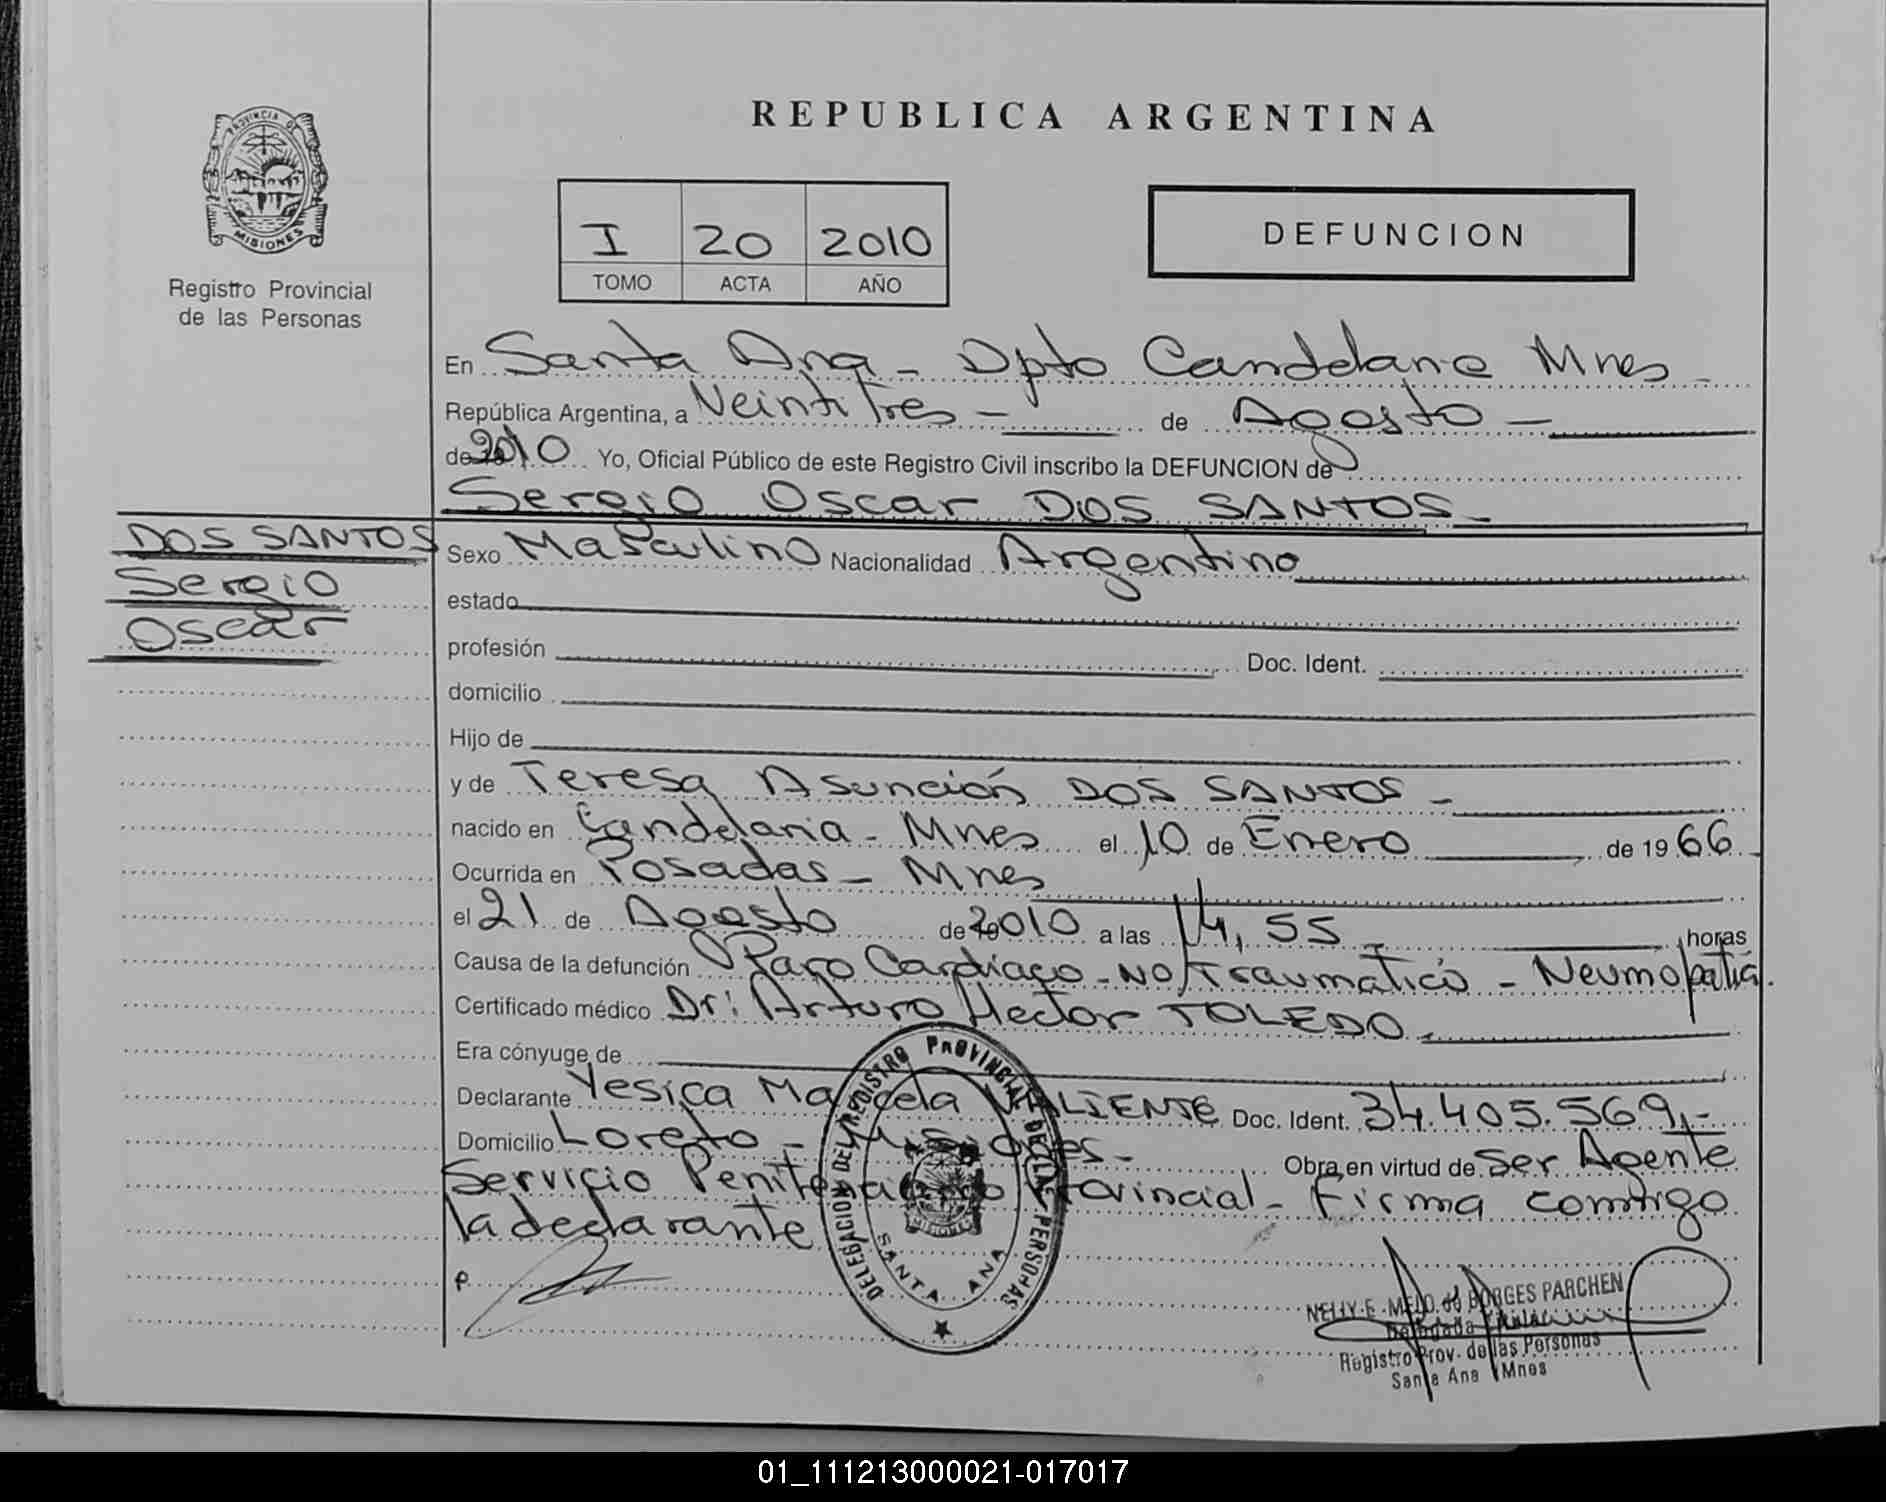 REPUBLICA ARGENTINA
PROVINCIA DE
MISIONES
Registro Provincial
de las Personas
I 20 2010
TOMO ACTA AÑO
DEFUNCION
En Santa Ana - Dpto Candelaria Mnes -
República Argentina, a Veintitres - de Agosto -
de 2010 Yo, Oficial Público de este Registro Civil inscribo la DEFUNCION de
Sergio Oscar DOS SANTOS -
DOS SANTOS
Sergio
Oscar
Sexo Masculino Nacionalidad Argentino
estado
profesión Doc. Ident.
domicilio
Hijo de
y de Teresa Asunción DOS SANTOS -
nacido en Candelaria - Mnes el 10 de Enero de 1966
Ocurrida en Posadas - Mnes
el 21 de Agosto de 2010 a las 14,55 - horas
Causa de la defunción Paro Cardiaco - NO Traumatico - Neumopatía.
Certificado médico Dr: Arturo Hector TOLEDO -
Era cónyuge de
Declarante Yesica Marcela VALIENTE Doc. Ident. 34.405.569,-
Domicilio Loreto - Misiones - Obra en virtud de Ser Agente
Servicio Penitenciario Provincial - Firma conmigo
la declarante
DELEGACION DEL REGISTRO PROVINCIAL DE LAS PERSONAS
MISIONES
SANTA ANA
NELLY E. MELO de BORGES PARCHEN
Delegada Titular
Registro Prov. de las Personas
Santa Ana Mnes
01_111213000021-017017